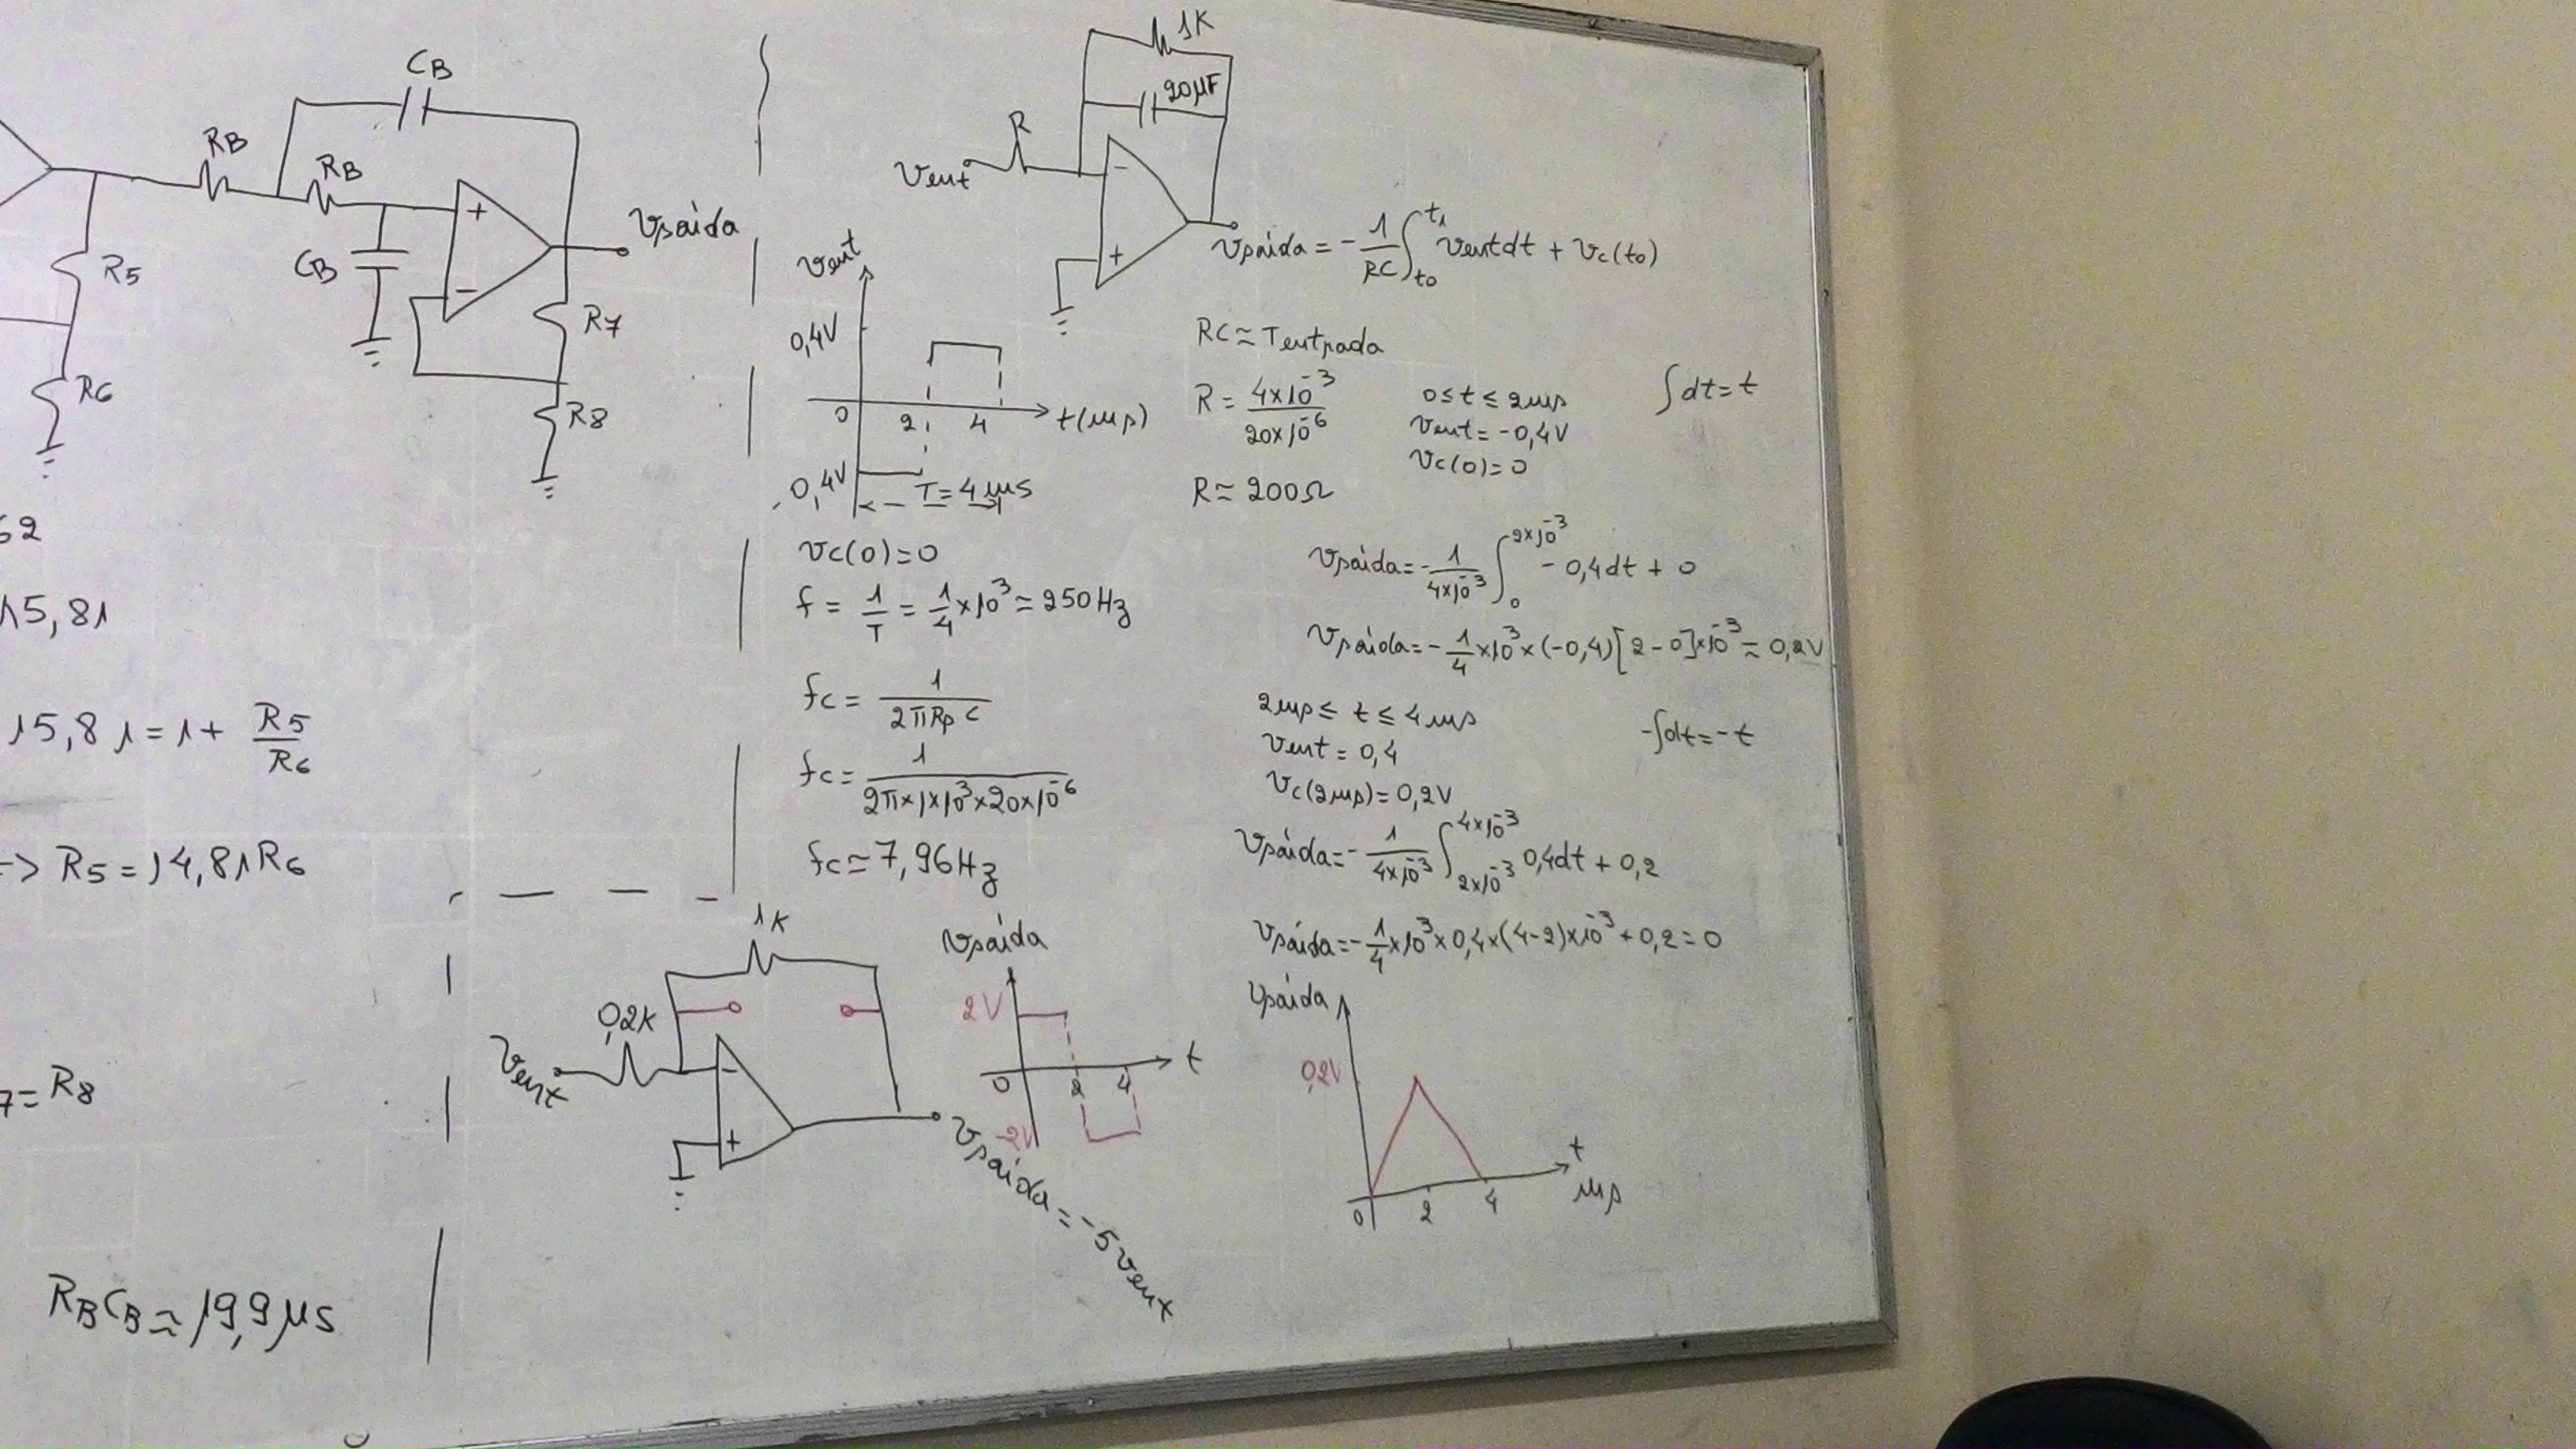 CB
RB
RB
+
−
CB
R5
R6
R7
R8
Vsaída
62
15,81
15,81 = 1 + R5/R6
-> R5 = 14,81R6
7 = R8
RBCB ≃ 19,9µs
1K
20µF
R
Vent
−
+
Vsaída = -1/RC ∫t0 t1 Vent dt + Vc(t0)
Vent
0,4V
0 2 4 t(ms)
-0,4V
T = 4ms
Vc(0) = 0
f = 1/T = 1/4 ×10³ ≃ 250Hz
fc = 1/2πRpC
fc = 1/2π×1×10³×20×10⁻⁶
fc ≃ 7,96Hz
RC ≃ Tentrada
R = 4×10⁻³/20×10⁻⁶
R ≃ 200Ω
0 ≤ t ≤ 2ms
Vent = -0,4V
Vc(0) = 0
∫dt = t
Vsaída = -1/4×10⁻³ ∫0 2×10⁻³ -0,4dt + 0
Vsaída = -1/4 ×10³×(-0,4)[2-0]×10⁻³ ≃ 0,2V
2ms ≤ t ≤ 4ms
Vent = 0,4
Vc(2ms) = 0,2V
-∫dt = -t
Vsaída = -1/4×10⁻³ ∫2×10⁻³ 4×10⁻³ 0,4dt + 0,2
Vsaída = -1/4 ×10³×0,4×(4-2)×10⁻³ + 0,2 = 0
1K
0,2K
Vent
−
+
Vsaída = -5Vent
Vsaída
2V
0 2 4 t
-2V
Vsaída
0,2V
0 2 4
t
ms